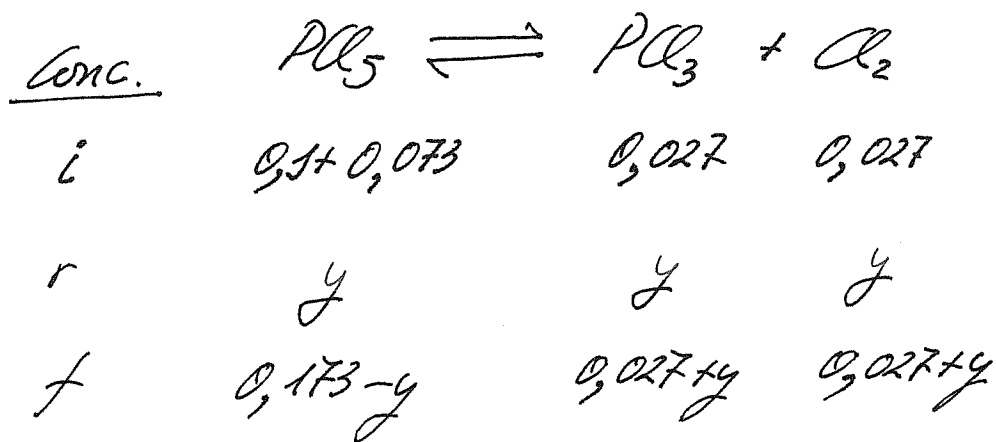 Conc. PCl5 ⇌ PCl3 + Cl2
i 0,1+0,073 0,027 0,027
r y y y
f 0,173-y 0,027+y 0,027+y